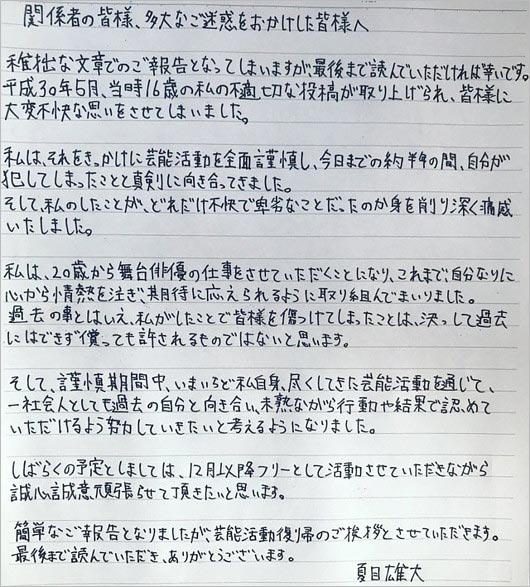 関係者の皆様、多大なご迷惑をおかけした皆様へ
稚拙な文章でのご報告となってしまいますが、最後まで読んでいただければ幸いです。
平成30年5月、当時16歳の私の不適切な投稿が取り上げられ、皆様に
大変不快な思いをさせてしまいました。
私は、それをきっかけに芸能活動を全面謹慎し、今日までの約半年の間、自分が
犯してしまったことと真剣に向き合ってきました。
そして、私のしたことが、どれだけ不快で卑劣なことだったのか身を削り深く痛感
いたしました。
私は、20歳から舞台俳優の仕事をさせていただくことになり、これまで、自分なりに
心から情熱を注ぎ、期待に応えられるように取り組んでまいりました。
過去の事とはいえ、私がしたことで皆様を傷つけてしまったことは、決っして過去
にはできず償っても許されるものではないと思います。
そして、謹慎期間中、いまいちど私自身、尽くしてきた芸能活動を通じて、
一社会人としても過去の自分と向き合い、未熟ながら行動や結果で認めて
いただけるよう努力していきたいと考えるようになりました。
しばらくの予定としましては、12月以降フリーとして活動させていただきながら
誠心誠意頑張らせて頂きたいと思います。
簡単なご報告となりましたが、芸能活動復帰のご挨拶とさせていただきます。
最後まで読んでいただき、ありがとうございます。
夏目雄大